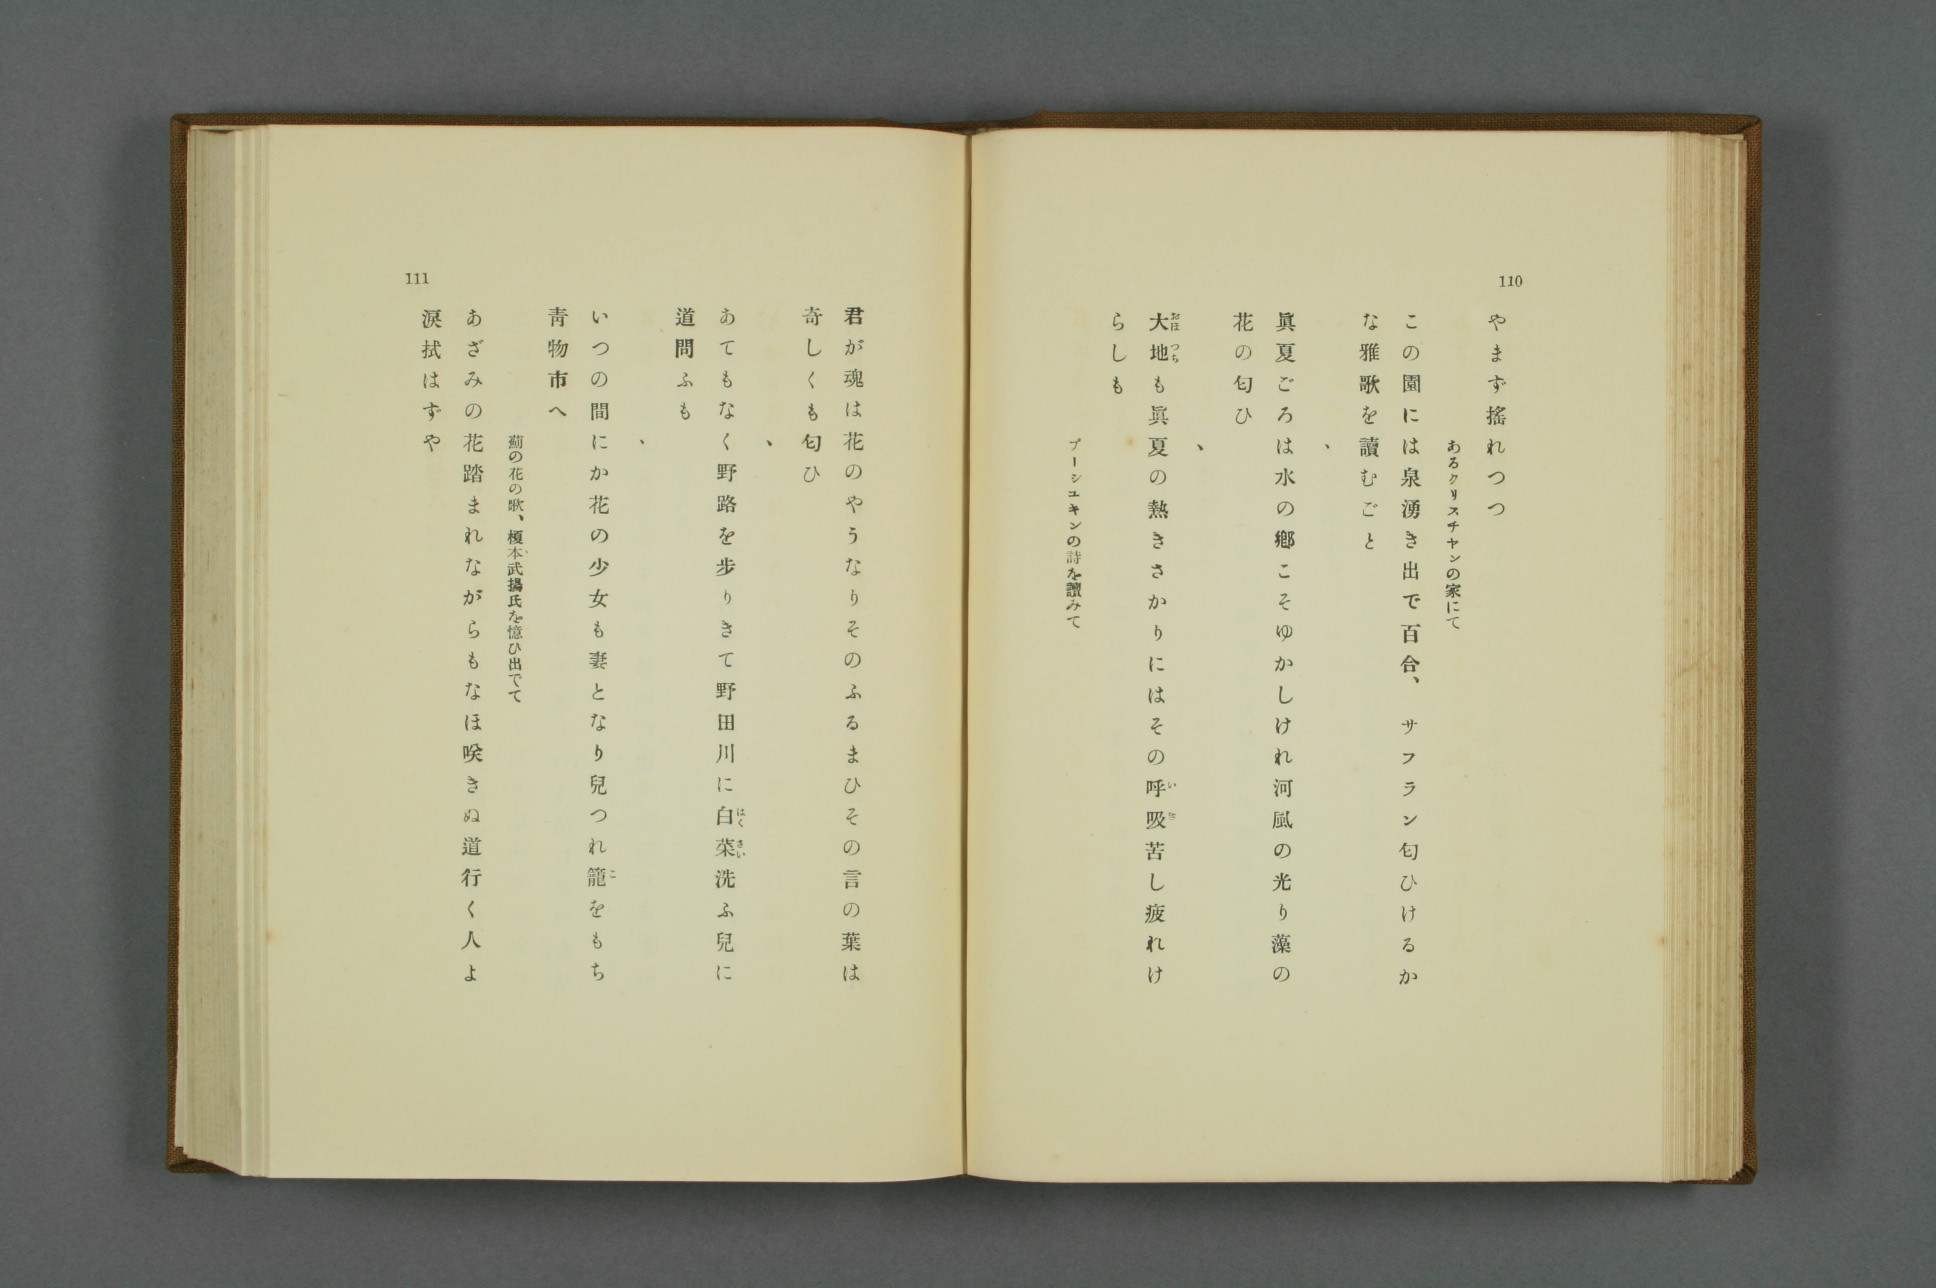 110
やまず搖れつつ
あるクリスチヤンの家にて
この園には泉湧き出で百合、サフラン匂ひけるか
な雅歌を讀むごと
、
眞夏ごろは水の鄕こそゆかしけれ河風の光り藻の
花の匂ひ
、
大地も眞夏の熱きさかりにはその呼吸苦し疲れけ
おほつち
いき
らしも
プーシユキンの詩を讀みて
111
君が魂は花のやうなりそのふるまひその言の葉は
奇しくも匂ひ
、
あてもなく野路を步りきて野田川に白菜洗ふ兒に
はくさい
道問ふも
、
いつの間にか花の少女も妻となり兒つれ籠をもち
こ
靑物市へ
薊の花の歌、榎本武揚氏を憶ひ出でて
あざみの花踏まれながらもなほ咲きぬ道行く人よ
淚拭はずや